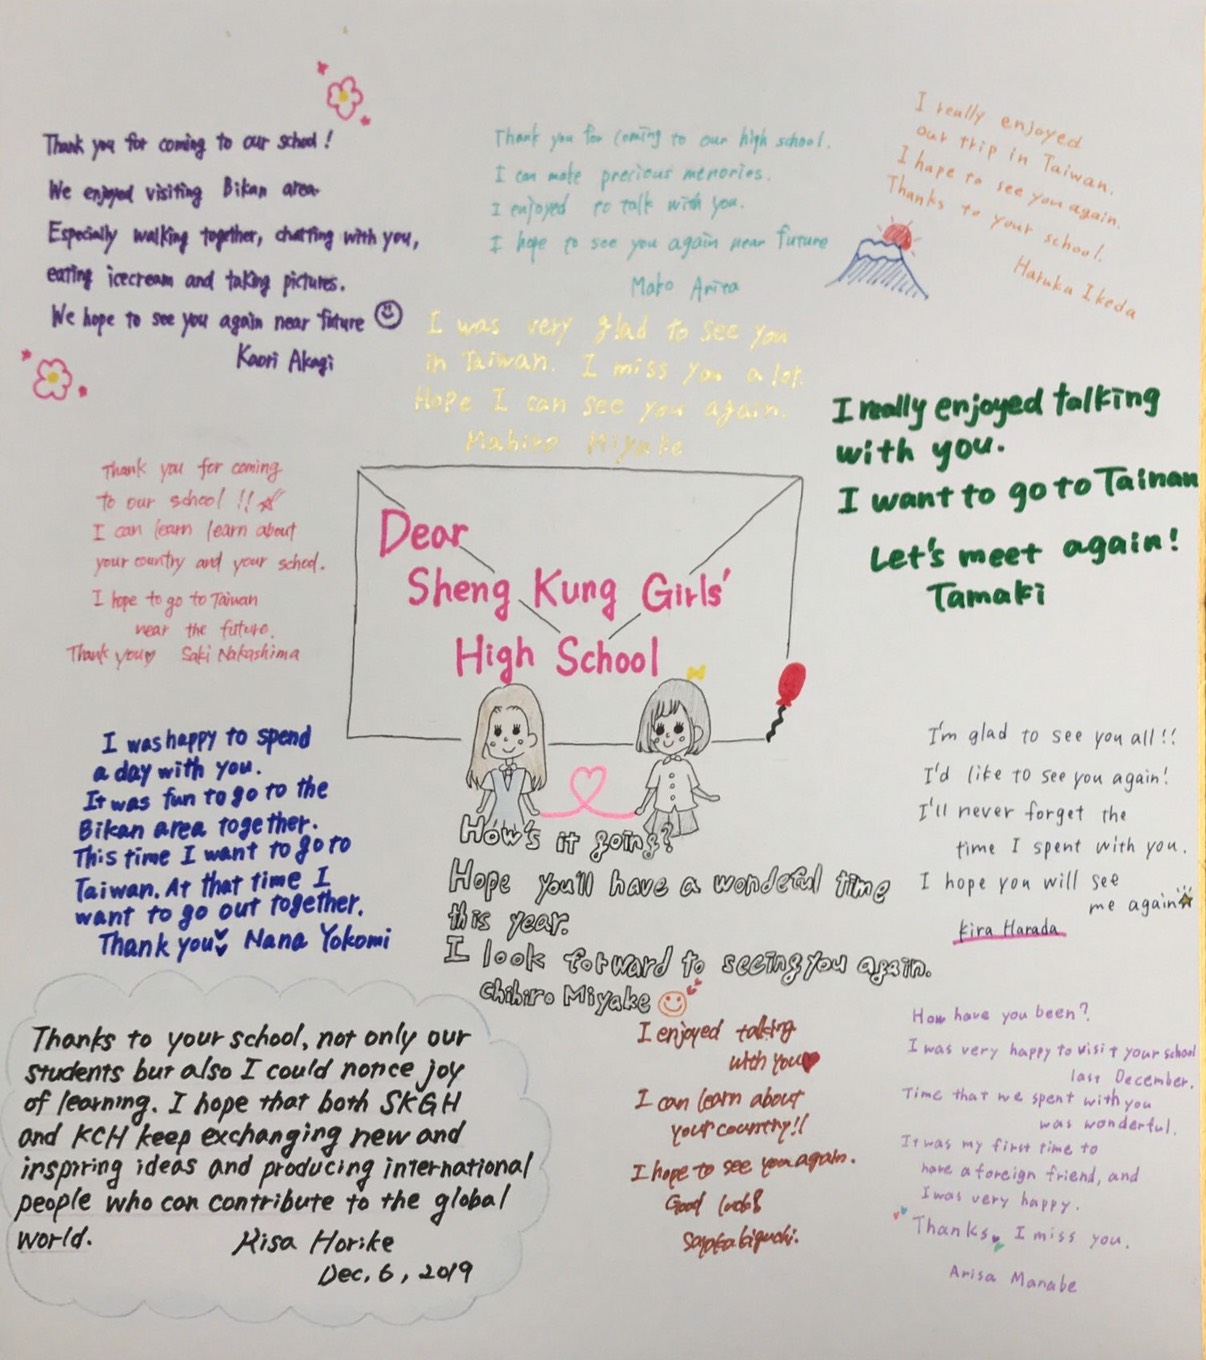 Thank you for coming to our school!
We enjoyed visiting Bikan area
Especially walking together, chatting with you,
eating icecream and taking pictures.
We hope to see you again near future
Kaori Akagi
Thank you for coming to our high school.
I can make precious memories.
I enjoyed to talk with you.
I hope to see you again near future
Mako Arita
I really enjoyed
our trip in Taiwan.
I hope to see you again.
Thanks to your school.
Haruka Ikeda
I was very glad to see you
in Taiwan. I miss you a lot.
Hope I can see you again.
Mahiro Miyake
I really enjoyed talking
with you.
I want to go to Tainan
Let's meet again!
Tamaki
Thank you for coming
to our school!!
I can learn learn about
your country and your school.
I hope to go to Taiwan
near the future.
Thank you Saki Nakashima
Dear
Sheng Kung Girls'
High School
I was happy to spend
a day with you.
It was fun to go to the
Bikan area together.
This time I want to go to
Taiwan. At that time I
want to go out together.
Thank you Nana Yokomi
How's it going?
Hope you'll have a wondeful time
this year.
I look forward to seeing you again.
Chihiro Miyake
I'm glad to see you all!!
I'd like to see you again!
I'll never forget the
time I spent with you.
I hope you will see
me again
Kira Harada
Thanks to your school, not only our
students but also I could notice joy
of learning. I hope that both SKGH
and KCH keep exchanging new and
inspiring ideas and producing international
people who can contribute to the global
world.
Kisa Horike
Dec. 6, 2019
I enjoyed talking
with you
I can learn about
your country!!
I hope to see you again.
Good
How have you been?
I was very happy to visit your school
last December.
Time that we spent with you
was wonderful.
It was my first time to
have a foreign friend, and
I was very happy.
Thanks, I miss you.
Arisa Manabe